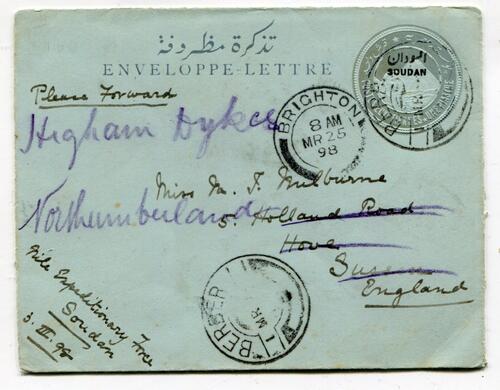 تذكرة مظروفة
ENVELOPPE-LETTRE
السودان
SOUDAN
Please Forward
BRIGHTON
8 AM
MR 25
98
Higham Dykes
Northumberland
Miss M. F. Milburne
5. Holland Road
Hove
Sussex
England
BERBER
MR
Nile Expeditionary Force
Soudan
3. III. 98